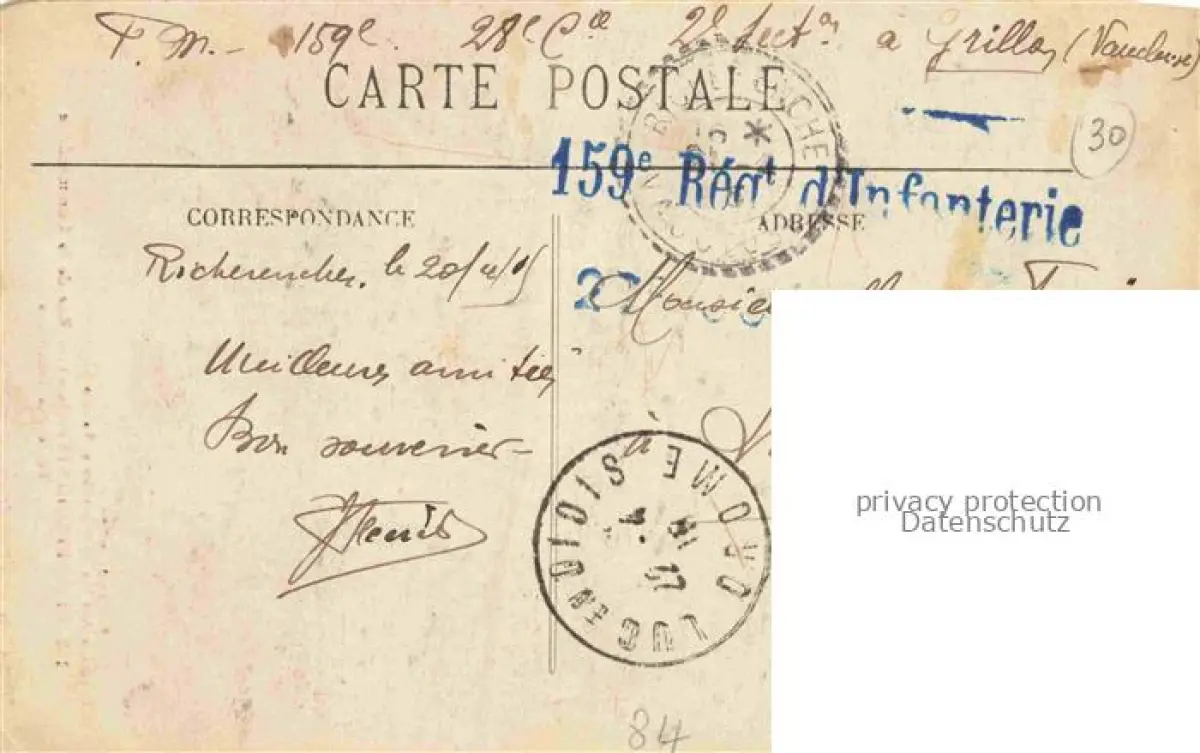 F. M. - 159e. 28e Cie 2e Sect on à Grillon (Vaucluse)
CARTE POSTALE
30
159e Régt d'Infanterie
CORRESPONDANCE
ADRESSE
Richerenches. le 20/4/15
Meilleures amitiés
Bon souvenir-
à
LUC EN DIOIS DROME
84
privacy protection
Datenschutz